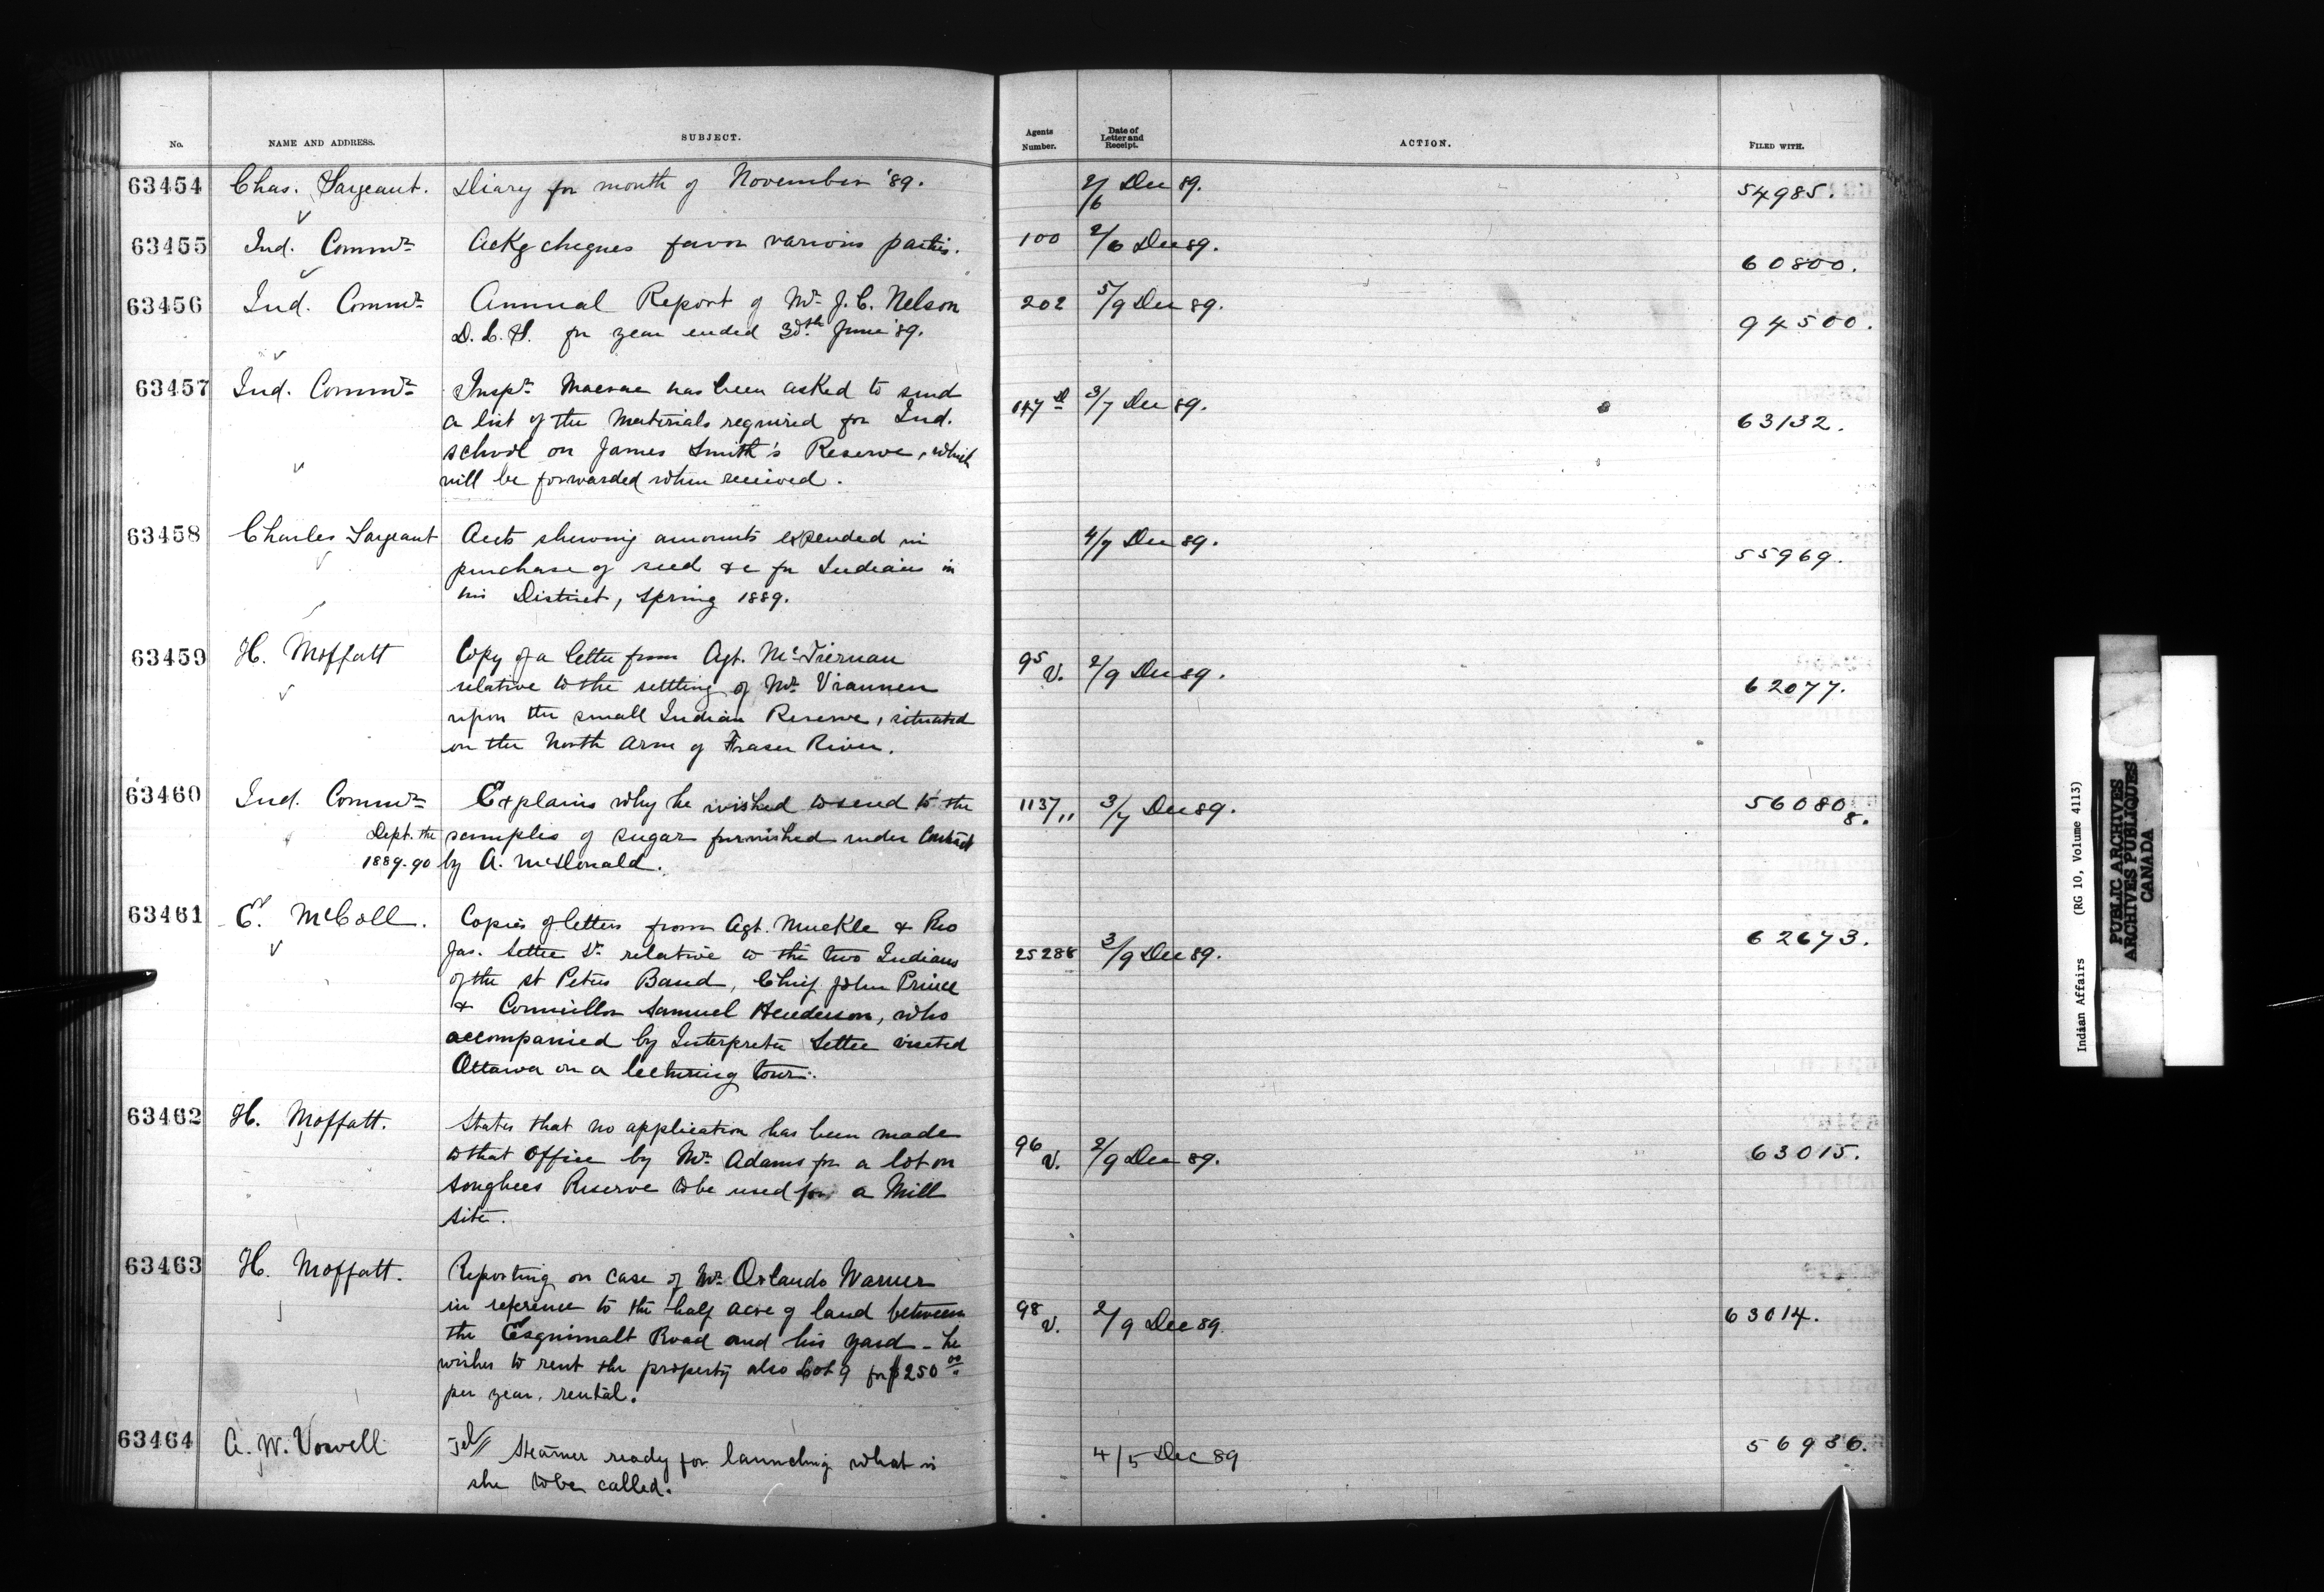 No. NAME AND ADDRESS. SUBJECT. Agents Number. Date of Letter and Receipt. ACTION. FILED WITH.
63454 Chas. Sargeant. Diary for month of November '89. 2/6 Dec 89. 54985.
63455 Ind. Commr. Ackg cheques favor various parties. 100 2/6 Dec 89. 60800.
63456 Ind. Commr. Annual Report of Mr. J. C. Nelson 202 5/9 Dec 89. 94500.
D. L. S. for year ended 30th June '89.
63457 Ind. Commr. Inspr. Macrae has been asked to send 147 D 3/7 Dec 89. 63132.
a list of the materials required for Ind.
school on James Smith's Reserve, which
will be forwarded when received.
63458 Charles Sargeant Accts shewing amounts expended in 4/7 Dec 89. 55969.
purchase of seed &c for Indians in
his District, spring 1889.
63459 H. Moffatt Copy of a letter from Agt. McTiernan 95 V. 2/9 Dec 89. 62077.
relative to the settling of Mr. Viannen
upon the small Indian Reserve, situated
on the North Arm of Fraser River.
63460 Ind. Commr. Explains why he wished to send to the 1137,, 3/7 Dec 89. 56080 8.
Dept. the samples of sugar furnished under Contract
1889-90 by A. McDonald.
63461 E. McColl. Copies of letters from Agt. Muckle & Rev 25288 3/9 Dec 89. 62673.
Jas. Settee Sr. relative to the two Indians
of the St Peters Band, Chief John Prince
& Councillor Samuel Henderson, who
accompanied by Interpreter Settee visited
Ottawa on a lecturing tour.
63462 H. Moffatt. States that no application has been made 96 V. 2/9 Dec 89. 63015.
to that Office by Mr. Adams for a lot on
Songhees Reserve to be used for a Mill
site.
63463 H. Moffatt. Reporting on case of Mr. Orlando Warner 98 V. 2/9 Dec 89 63014.
in reference to the half acre of land between
the Esquimalt Road and his yard - he
wishes to rent the property also Lot 9 for $250 00
per year, rental.
63464 A. W. Vowell Tel// Steamer ready for launching what is 4/5 Dec 89 56936.
she to be called.
Indian Affairs (RG 10, Volume 4113)
PUBLIC ARCHIVES
ARCHIVES PUBLIQUES
CANADA